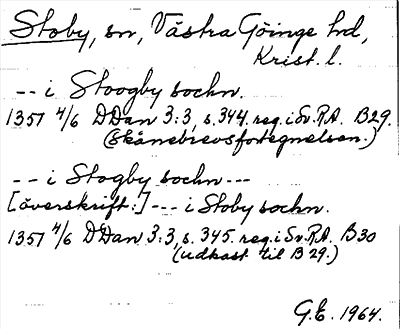 Stoby, sn, Västra Göinge hd,
Krist. l.
-- i Stoogby sochn.
1357 4/6 DDan 3:3, s. 344. reg. i Sv.R.A. B29.
(Skånebrevsfortegnelsen.)
-- i Stogby sochn ---
[överskrift:] --- i Stoby sochn.
1357 4/6 DDan 3:3, s. 345. reg. i Sv.R.A. B30
(udkast til B 29.)
G.E. 1964.